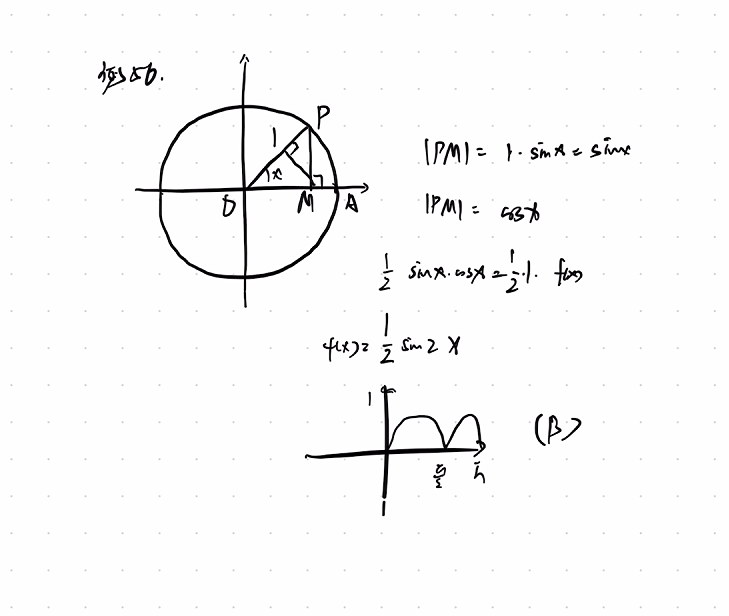 例56.
P
1
x
O M A
|PM| = 1·sinx = sinx
|PM| = cosx
1/2 sinx·cosx = 1/2·1·f(x)
f(x) = 1/2 sin2x
1
π/2 π
(B)